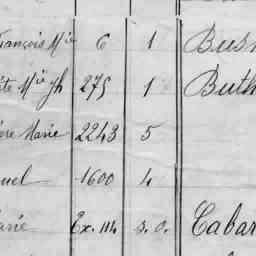 François Mie 6 1 Bus
te Mie Jh 275 1 Buth
ère Marie 2243 5
uel 1600 4
arie Ex. 114 3. 0. Cabar